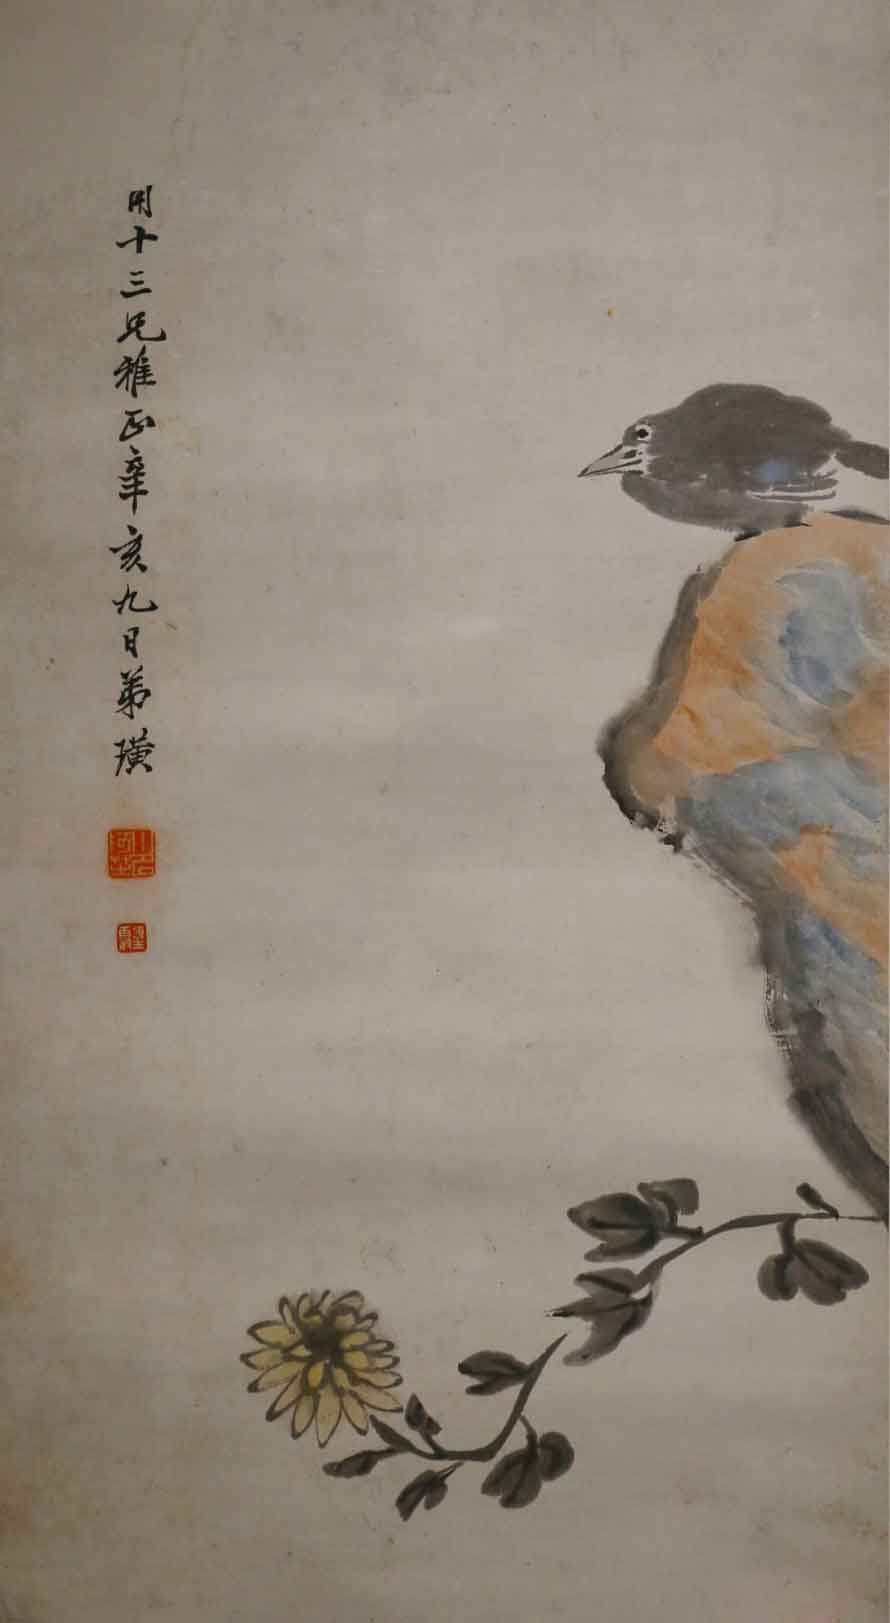 用十三兄雅正辛亥九日弟璜